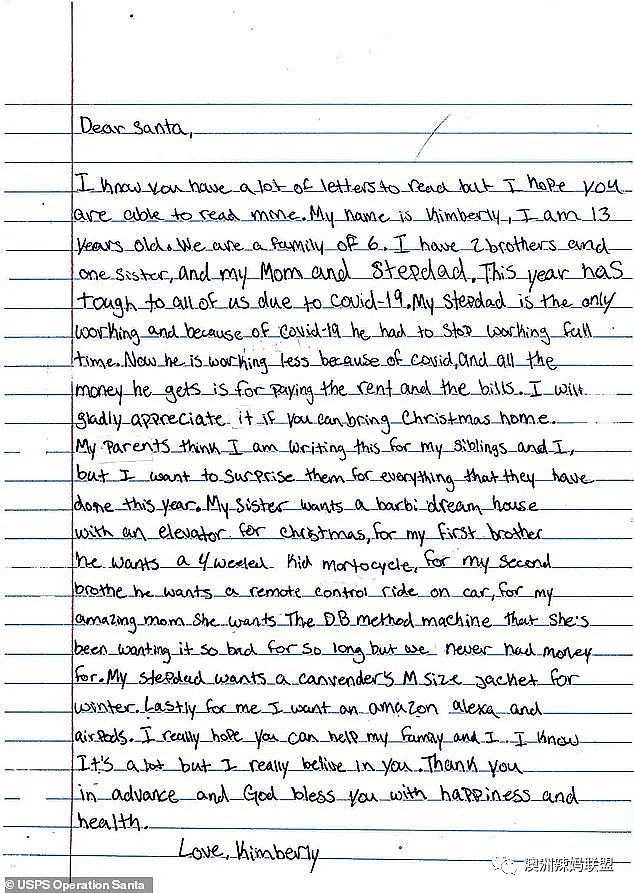 Dear Santa,
I know you have a lot of letters to read but I hope you
are able to read mine. My name is Kimberly, I am 13
years old. We are a family of 6. I have 2 brothers and
one sister, and my Mom and Stepdad. This year has
tough to all of us due to covid-19. My stepdad is the only
working and because of covid-19 he had to stop working full
time. Now he is working less because of covid, and all the
money he gets is for paying the rent and the bills. I will
gladly appreciate it if you can bring Christmas home.
My parents think I am writing this for my siblings and I,
but I want to surprise them for everything that they have
done this year. My sister wants a barbi dream house
with an elevator for christmas, for my first brother
he wants a 4 weeled kid mortocycle, for my second
brothe he wants a remote control ride on car, for my
amazing mom she wants The DB method machine that she's
been wanting it so bad for so long but we never had money
for. My stepdad wants a canvender's M size jacket for
winter. Lastly for me I want an amazon alexa and
airpods. I really hope you can help my family and I. I know
It's a lot but I really belive in you. Thank you
in advance and God bless you with happiness and
health.
Love, Kimberly
澳洲辣妈联盟
© USPS Operation Santa